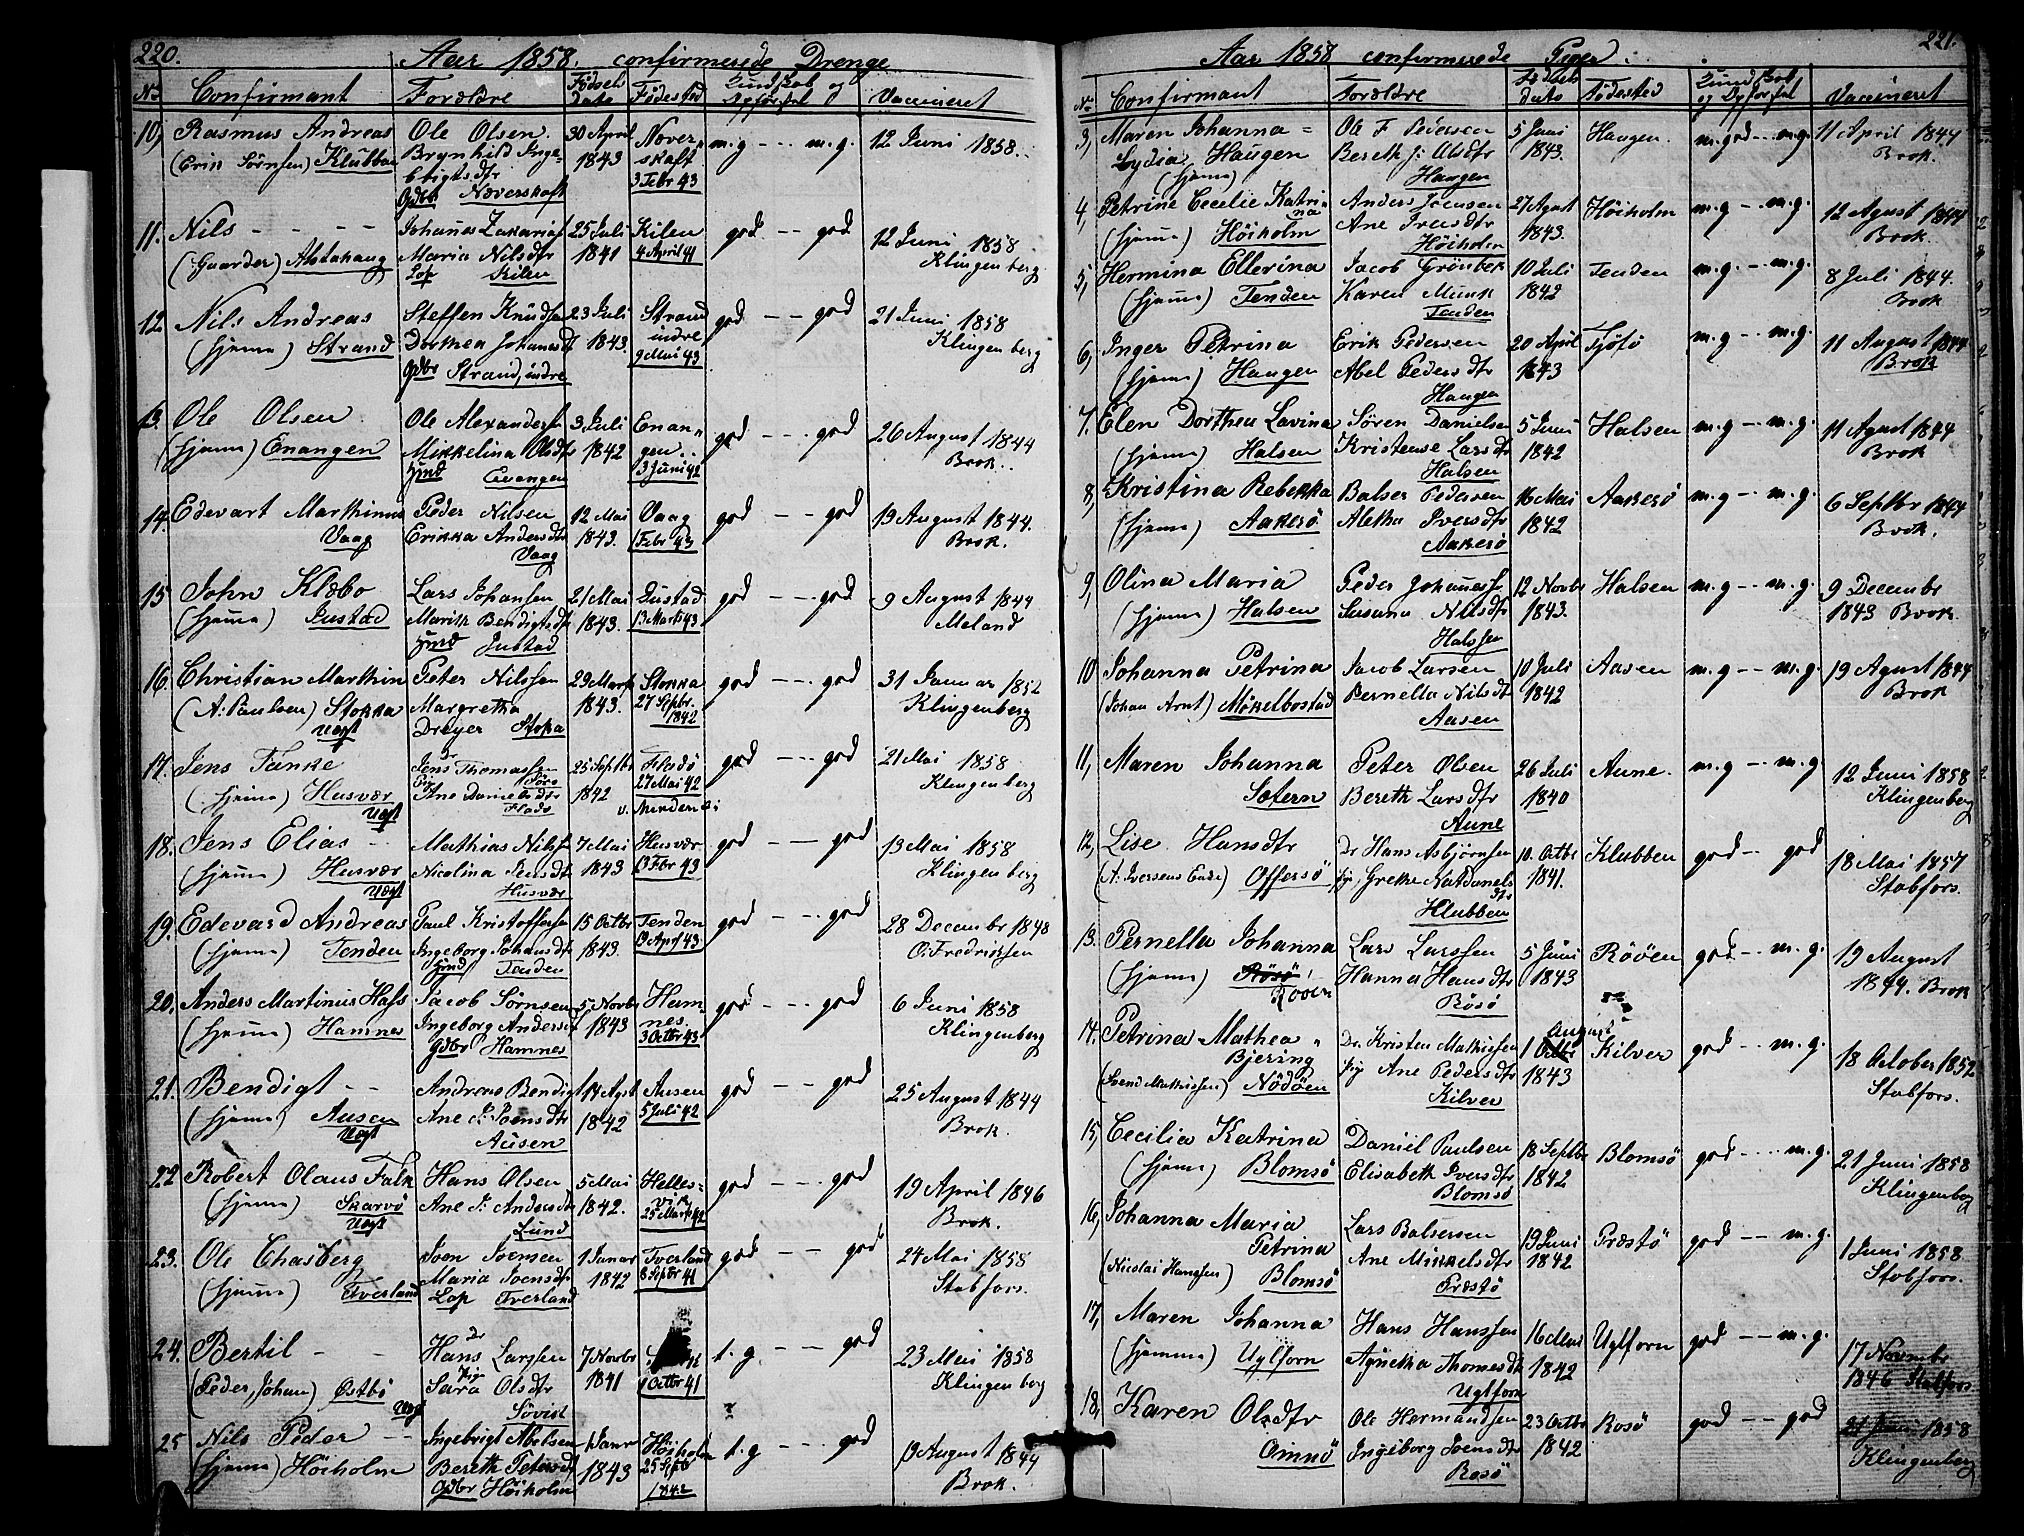 220.
Aar 1858. confirmerede Drenge
No Confirmant Forældre Fødsels Dato Fødested Kundskab og Vaccineret
10, Rasmus Andreas Ole Olsen. 30 April Næver- m.g - - - m.g. 12 Juni 1858.
(Erik Sørnsen) Klubben Brynhild Inge- 1843 skaft
3 Febr 43
Gdbr Næverskaft
11. Nils - - - - Johanes Zakarias 25 Juli Kilen god - - god 12 Juni 1858
(Gaarder) Alstahaug Maria Nilsdtr 1841 4 April 41 Klingenberg
Kilen
12. Nils Andreas Steffen Knudsen 23 Juli Strand god - - god 21 Juni 1858
(hjemme) Strand Dorthea Johansdt 1843. indre Klingenberg
9 Mai 43
Gdbr Strand, indre
13. Ole Olsen Ole Alexanders 3 Juli Enan- god - - god 26 August 1844
(hjemme) Enangen Mikkelina Olsdtr 1842 gen.. Brok..
Husmd 3 Juni 42
14. Edevart Marthinus Peder Nilsen 12 Mai Vaag god - - god 19 August 1844.
Vaag Erikka Andersdtr 1843. 1 Febr 43 Brok.
Vaag
15 John Klæbo Lars Johansen 21 Mai Justad god - - god 9 August 1844
(hjemme) Justad Marith Bendigtsdt 1843. 13 Marts 43 Meland
Justad
16. Christian Marthin Peter Nilssen 29 Marts Stokka god - - god 31 Januar 1852
(A: Paulsen) Stokka Margretha 1843. 27 Septbr. Klingenberg
Uægt Dreyer Stoka 1842
17. Jens Fanke Jens Thomassen 25 Septbr Fladø god - - god 21 Mai 1858
(hjemme) Husvær Ane Danielsdtr 1842 27 Mai 42 Klingenberg
Uægt Fladø
18. Jens Elias - - Mathias Nilss 7 Mai Husvær god - - god 13 Mai 1858
(hjemme) Husvær Nicolina Jensdt 1843 13 Febr 43 Klingenberg
Uægt Husvær
19. Edevard Andreas Paul Kristoffersen 15 Octbr Tenden god - - god 28 Decembr 1848
(hjemme) Tenden Ingeborg Johansdtr 1843. O. Fredriksen
Tenden
20. Anders Martinus Hass Jacob Sørnsen 5 Novbr Ham- god - - god 6 Juni 1858
(hjemme) Hamnes Ingeborg Andersdt 1843 nes. Klingenberg
Gdbr Hamnes 3 Octbr 43
21. Bendigt - - Andreas Bendigt 14 Agst Ausen god - - god 25 August 1844
(hjemme) Ausen Ane P: Joensdtr 1842 5 Juli 42 Brok.
Uægt Ausen
22 Robert Olaus Falk Hans Olsen 5 Mai Helles- god - - god 19 April 1846
(hjemme) Skarvø Ane P: Andersdt 1842. vik Brok.
Uægt Lund 25 Marts 42
23. Ole Chasberg Joen Joensen 1 Januar Tverland god - - god 24 Mai 1858
(hjemme) Tverland Maria Joensdtr 1842 8 Septbr 41 Stabfors.
Lap Tverland
24. Bertil - - Hans Larssen 7 Novbr t.g - - god 23 Mai 1858
(Peder, Johan) Østbø Sara Olsdtr 1841 1 Octbr 41 Klingenberg
Uægt Søvist
25 Nils Peder - - Ingebrigt Abelsen 1 Januar Høiholm t.g - - - god 19 August 1844
(hjemme) Høiholm Bereth Petersdt 1843 25 Septb Brok.
Gdbr Høiholm 1842
221.
Aar 1858 confirmerede Piger:
No Confirmant Forældre Fødsels dato Fødested Kundskab og Vaccineret
3, Maren Johanna = Ole F Pedersen 5 Juni Haugen. m.god - - m.g. 11 April 1844
Lydia Haugen Bereth J: Olsdtr 1843. Brok.
(hjemme) Haugen
4, Petrine Cecelie Katri- Anders Joensen 27 Agust Høiholm m.g - - m.g. 12 Agust 1844
na Ane Jensdtr 1843. Brok.
(hjemme) Høiholm Høiholm
5, Hermina Ellerina Jacob Grønbek 10 Juli Tenden m.g. - - m.g. 8 Juli 1844.
(hjemme) Tenden Karen Munk 1842 Brok
Tenden
6, Inger Petrina Erik Pedersen 20 April Tjøtø m.g - - m.g. 11 August 1844
(hjemme) Haugen Abel Pedersdtr 1843 Brok
Haugen
7. Elen Dorthea Lavina Søren Danielsen 5 Juni Halsen m.g - - m.g. 11 Agust 1844
(hjemme) Halsen Kristense Larsdtr 1842 Brok
Halsen
8, Kristina Rebekka Balser Pedersen 16 Mai Aakerø m.g - - m.g. 6 Septbr 1844
(hjemme) Aakerø Aletha Iversdtr 1842 Brok.
Aakerø
9, Olina Maria Peder Johanness 12 Novbr Halsen m.g - - m.g. 9 Decembr
(hjemme) Halsen Susana Nilsdtr 1843. 1843 Brok
Halssen
10 Johanna Petrina Jacob Larsen 10 Juli Aasen m.g - - m.g. 19 Agust 1844
(Johan Arnt) Møkelbostad Pernella Nilsdt 1842 Brok
Aasen
11, Maren Johanna Peter Olsen 26 Juli Aune. m.g - - m.g. 12 Juni 1858
Sætern Bereth Larsdtr 1840 Klingenberg
Aune
12, Lise. Hansdtr Dr Hans Asbjørnsen 10. Octbr Klubben god - - god 18 Mai 1857
(A: Iversens Enke) Offersø Grethe Natdanels 1841. Stabfors.
dtr
Klubben
13. Pernella Johanna Lars Larssen 5 Juni Røøen god - - m.g. 19 August
(hjemme) Røsø Hanna Hansdtr 1843 1844. Brok
Røøen Røsø
14. Petrina Mathea Dr. Kristen Mathissen August Kilver god - - m.g. 18 October 1852
Bjering 1 Octbr Stabfors.
(Svend Mathissen) Nødøen Pig Ane Pedersdtr 1843
Kilver
15, Cecilia Katrina Daniil Paulsen 18 Septbr Blomsø god - - m.g. 21 Juni 1858
(hjemme) Blomsø Elisabeth Iversdtr 1842 Klingenberg
Blomsø
16, Johanna Maria Lars Balsersen 19 Juni Præstø god - - m.g. 1 Juni 1858
Petrina Ane Mikkelsdtr 1842 Stabfors.
(Nicolai Hanssen) Blomsø Præstø
17, Maren Johanna Hans Hanssen 16 Mai Uglforn god - - m.g. 17 Novembr
(hjemme) Uglforn Agnetha Thomesdt 1842 1846 Stabfors
Uglforn
18, Karen Olsdtr Ole Hermandsen 23 Octbr Rosø god - - god 21 Juni 1858
Omnø Ingeborg Joensdtr 1842 Klingenberg
Rosø